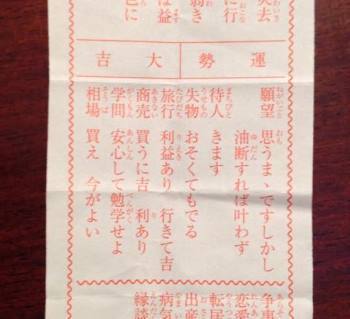 に行
弱き
は益
色に
運勢 大吉
願望 思うまゝですしかし
油断すれば叶わず
待人 きます
失物 おそくてもでる
旅行 利益あり 行きて吉
商売 買うに吉 利あり
学問 安心して勉学せよ
相場 買え 今がよい
争事
恋愛
転居
出産
病気
縁談